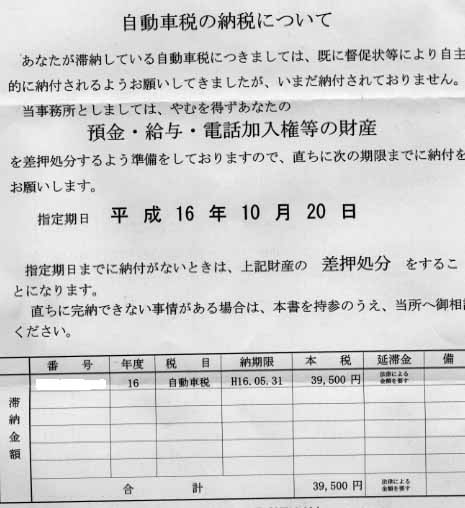 自動車税の納税について
あなたが滞納している自動車税につきましては、既に督促状等により自主
的に納付されるようお願いしてきましたが、いまだ納付されておりません。
当事務所としましては、やむを得ずあなたの
預金・給与・電話加入権等の財産
を差押処分するよう準備をしておりますので、直ちに次の期限までに納付を
お願いします。
指定期日 平成16年10月20日
指定期日までに納付がないときは、上記財産の 差押処分 をするこ
とになります。
直ちに完納できない事情がある場合は、本書を持参のうえ、当所へ御相談
ください。
番号 年度 税目 納期限 本税 延滞金 備
16 自動車税 H16.05.31 39,500円 法律による金額を要す
滞納金額
合計 39,500円 法律による金額を要す